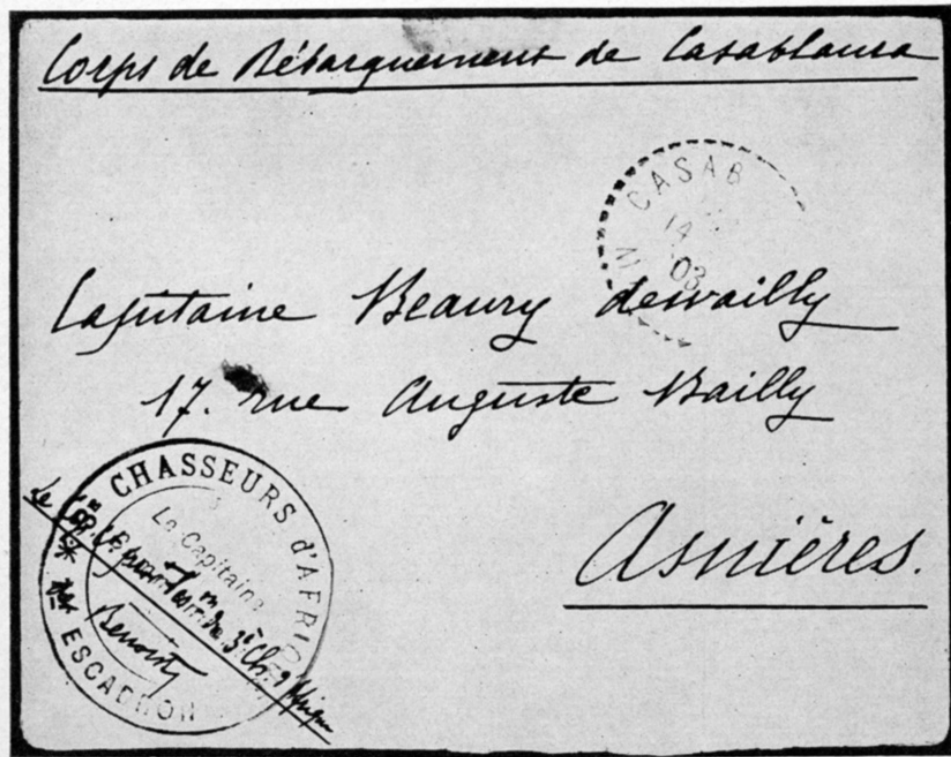 Corps de Débarquement de Casablanca
CASAB
14
03
Capitaine Beaury dewailly
17. rue Auguste Bailly
Asnières.
CHASSEURS d'AFRIQUE
Le Capitaine
ESCADRON